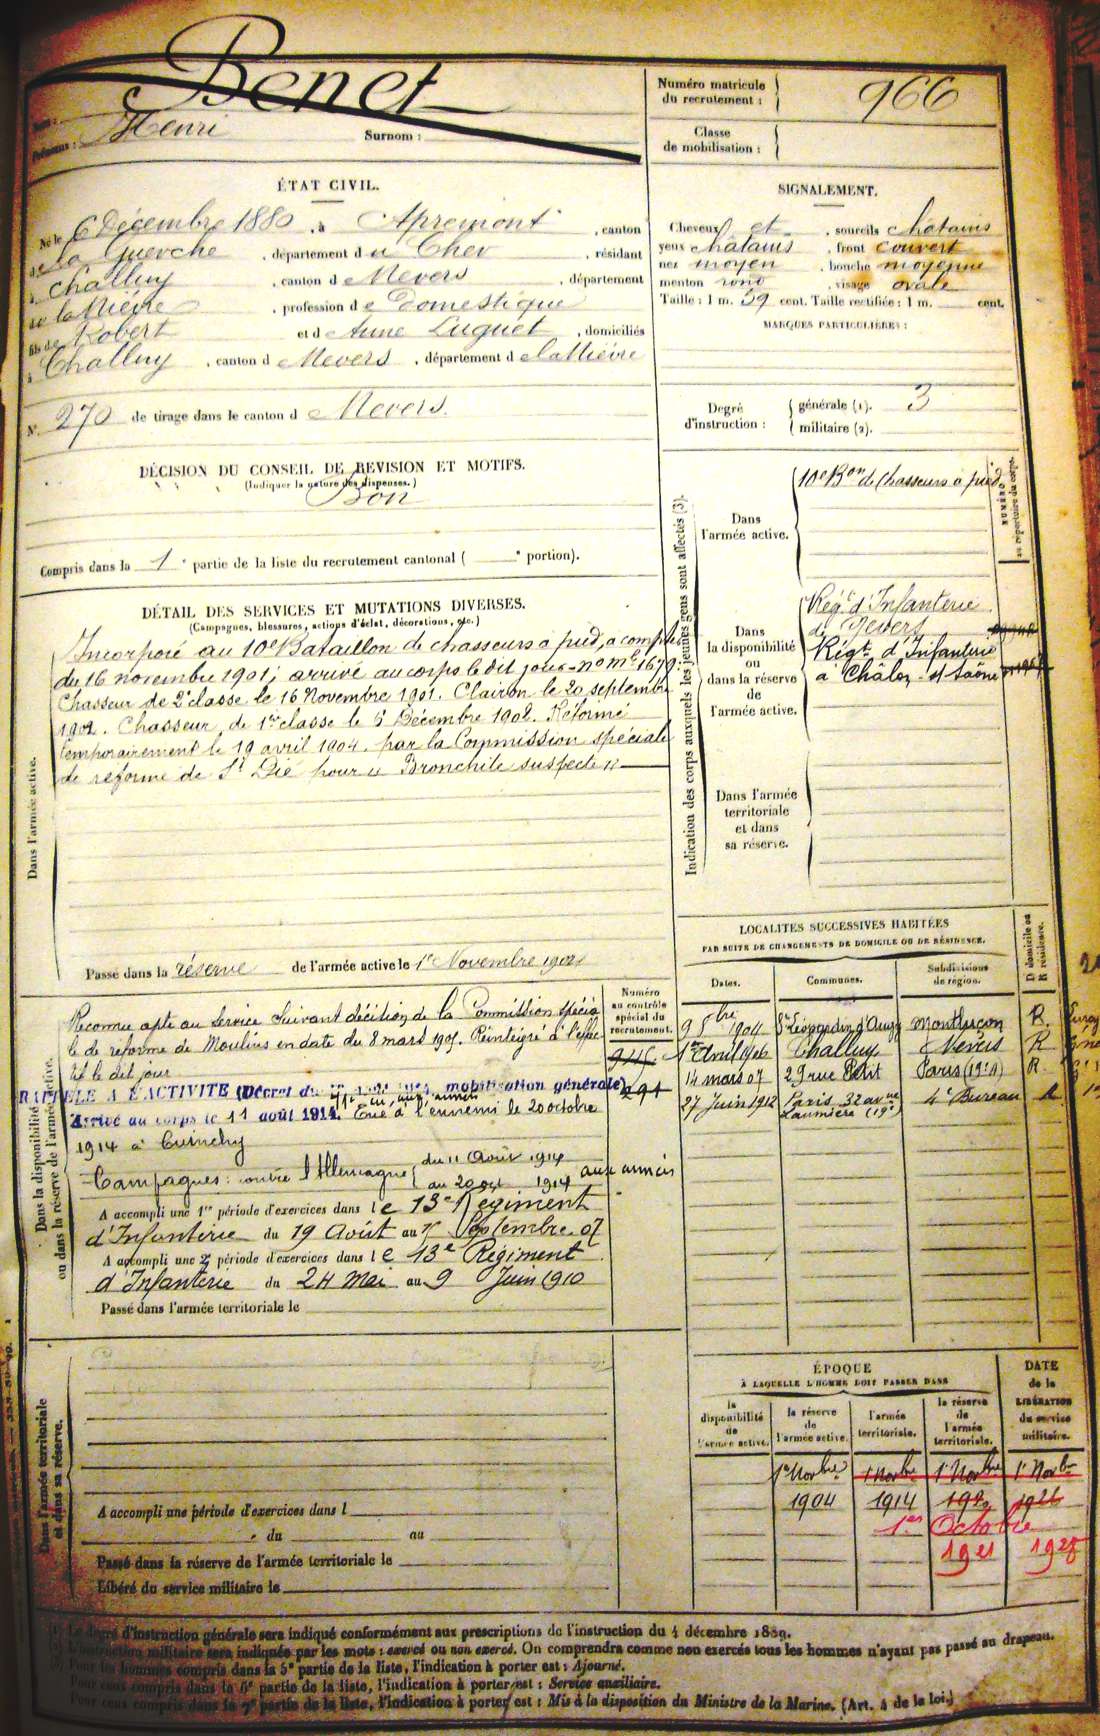 Benet
Nom :
Henri
Prénoms :
Surnom :
Numéro matricule
du recrutement :
966
Classe
de mobilisation :
ÉTAT CIVIL.
Né le 6 Décembre 1880, à Apremont, canton
de la Guerche, département du Cher, résidant
à Challuy, canton de Nevers, département
de la Nièvre, profession de domestique
fils de Robert et d Anne Luguet, domiciliés
à Challuy, canton de Nevers, département de la Nièvre
N° 270 de tirage dans le canton de Nevers.
SIGNALEMENT.
Cheveux et , sourcils châtains
yeux châtains , front couvert
nez moyen , bouche moyenne
menton rond , visage ovale
Taille : 1 m. 59 cent. Taille rectifiée : 1 m. cent.
MARQUES PARTICULIÈRES :
Degré
d'instruction :
générale (1). 3
militaire (2).
DÉCISION DU CONSEIL DE REVISION ET MOTIFS.
(Indiquer la nature des dispenses.)
Bon
Compris dans la 1e partie de la liste du recrutement cantonal ( e portion).
DÉTAIL DES SERVICES ET MUTATIONS DIVERSES.
(Campagnes, blessures, actions d'éclat, décorations, etc.)
Dans l'armée active.
Incorporé au 10e Bataillon de chasseurs à pied, à compter
du 16 novembre 1901; arrivé au corps le dit jour - no Mle 1679
Chasseur de 2e classe le 16 Novembre 1901. Clairon le 20 septembre
1902. Chasseur de 1re classe le 5 Décembre 1902. Réformé
temporairement le 19 avril 1904. par la Commission spéciale
de réforme de St Dié pour « Bronchite suspecte »
Passé dans la réserve de l'armée active le 1e Novembre 1904
Indication des corps auxquels les jeunes gens sont affectés (3).
NUMÉRO
au répertoire du corps.
Dans
l'armée active.
10e Bon de Chasseurs à pied
Dans
la disponibilité
ou
dans la réserve
de
l'armée active.
Régt d'Infanterie
de Nevers
Régt d'Infanterie
à Châlon-s/Saône
Dans l'armée
territoriale
et dans
sa réserve.
Dans la disponibilité
ou dans la réserve de l'armée active.
Numéro
au contrôle
spécial du
recrutement.
Reconnu apte au service suivant décision de la Commission spécia
le de réforme de Moulins en date du 8 mars 1905. Réintégré à l'effec
tif le dit jour
RAPPELÉ A L'ACTIVITÉ (Décret du mobilisation générale)
Arrivé au corps le 11 août 1914. Tué à l'ennemi le 20 octobre
1914 à Cuinchy
Campagnes : contre l'Allemagne du 11 Août 1914
au 20 oct 1914 aux armées
A accompli une 1re période d'exercices dans le 13e Régiment
d'Infanterie du 19 Août au Septembre 07
A accompli une 2e période d'exercices dans le 13e Régiment
d'Infanterie du 24 Mai au 9 Juin 1910
Passé dans l'armée territoriale le
LOCALITÉS SUCCESSIVES HABITÉES
PAR SUITE DE CHANGEMENTS DE DOMICILE OU DE RÉSIDENCE.
Dates. Communes. Subdivisions
de région.
D domicile ou
R résidence.
9 5bre 1904 St Léopardin d'Augy Montluçon R
1er Avril 1906 Challuy Nevers R
14 mars 07 29 rue Petit Paris (19e) R
27 Juin 1912 Paris 32 avnue
Laumière (19e) 4e Bureau R
Dans l'armée territoriale
et dans sa réserve.
A accompli une période d'exercices dans l
du au
Passé dans la réserve de l'armée territoriale le
Libéré du service militaire le
ÉPOQUE
À LAQUELLE L'HOMME DOIT PASSER DANS
DATE
de la
LIBÉRATION
du service
militaire.
la
disponibilité
de
l'armée active.
la réserve
de
l'armée active.
l'armée
territoriale.
la réserve
de
l'armée
territoriale.
1e Novbre 1e Novbre 1e Novbre 1e Novbre
1904 1914 1920 1926
1er Octobre
1921 1928
(1) Le degré d'instruction générale sera indiqué conformément aux prescriptions de l'instruction du 4 décembre 1889.
(2) L'instruction militaire sera indiquée par les mots : exercé ou non exercé. On comprendra comme non exercés tous les hommes n'ayant pas passé au drapeau.
(3) Pour les hommes compris dans la 5e partie de la liste, l'indication à porter est : Ajourné.
Pour ceux compris dans la 6e partie de la liste, l'indication à porter est : Service auxiliaire.
Pour ceux compris dans la 7e partie de la liste, l'indication à porter est : Mis à la disposition du Ministre de la Marine. (Art. 4 de la loi.)